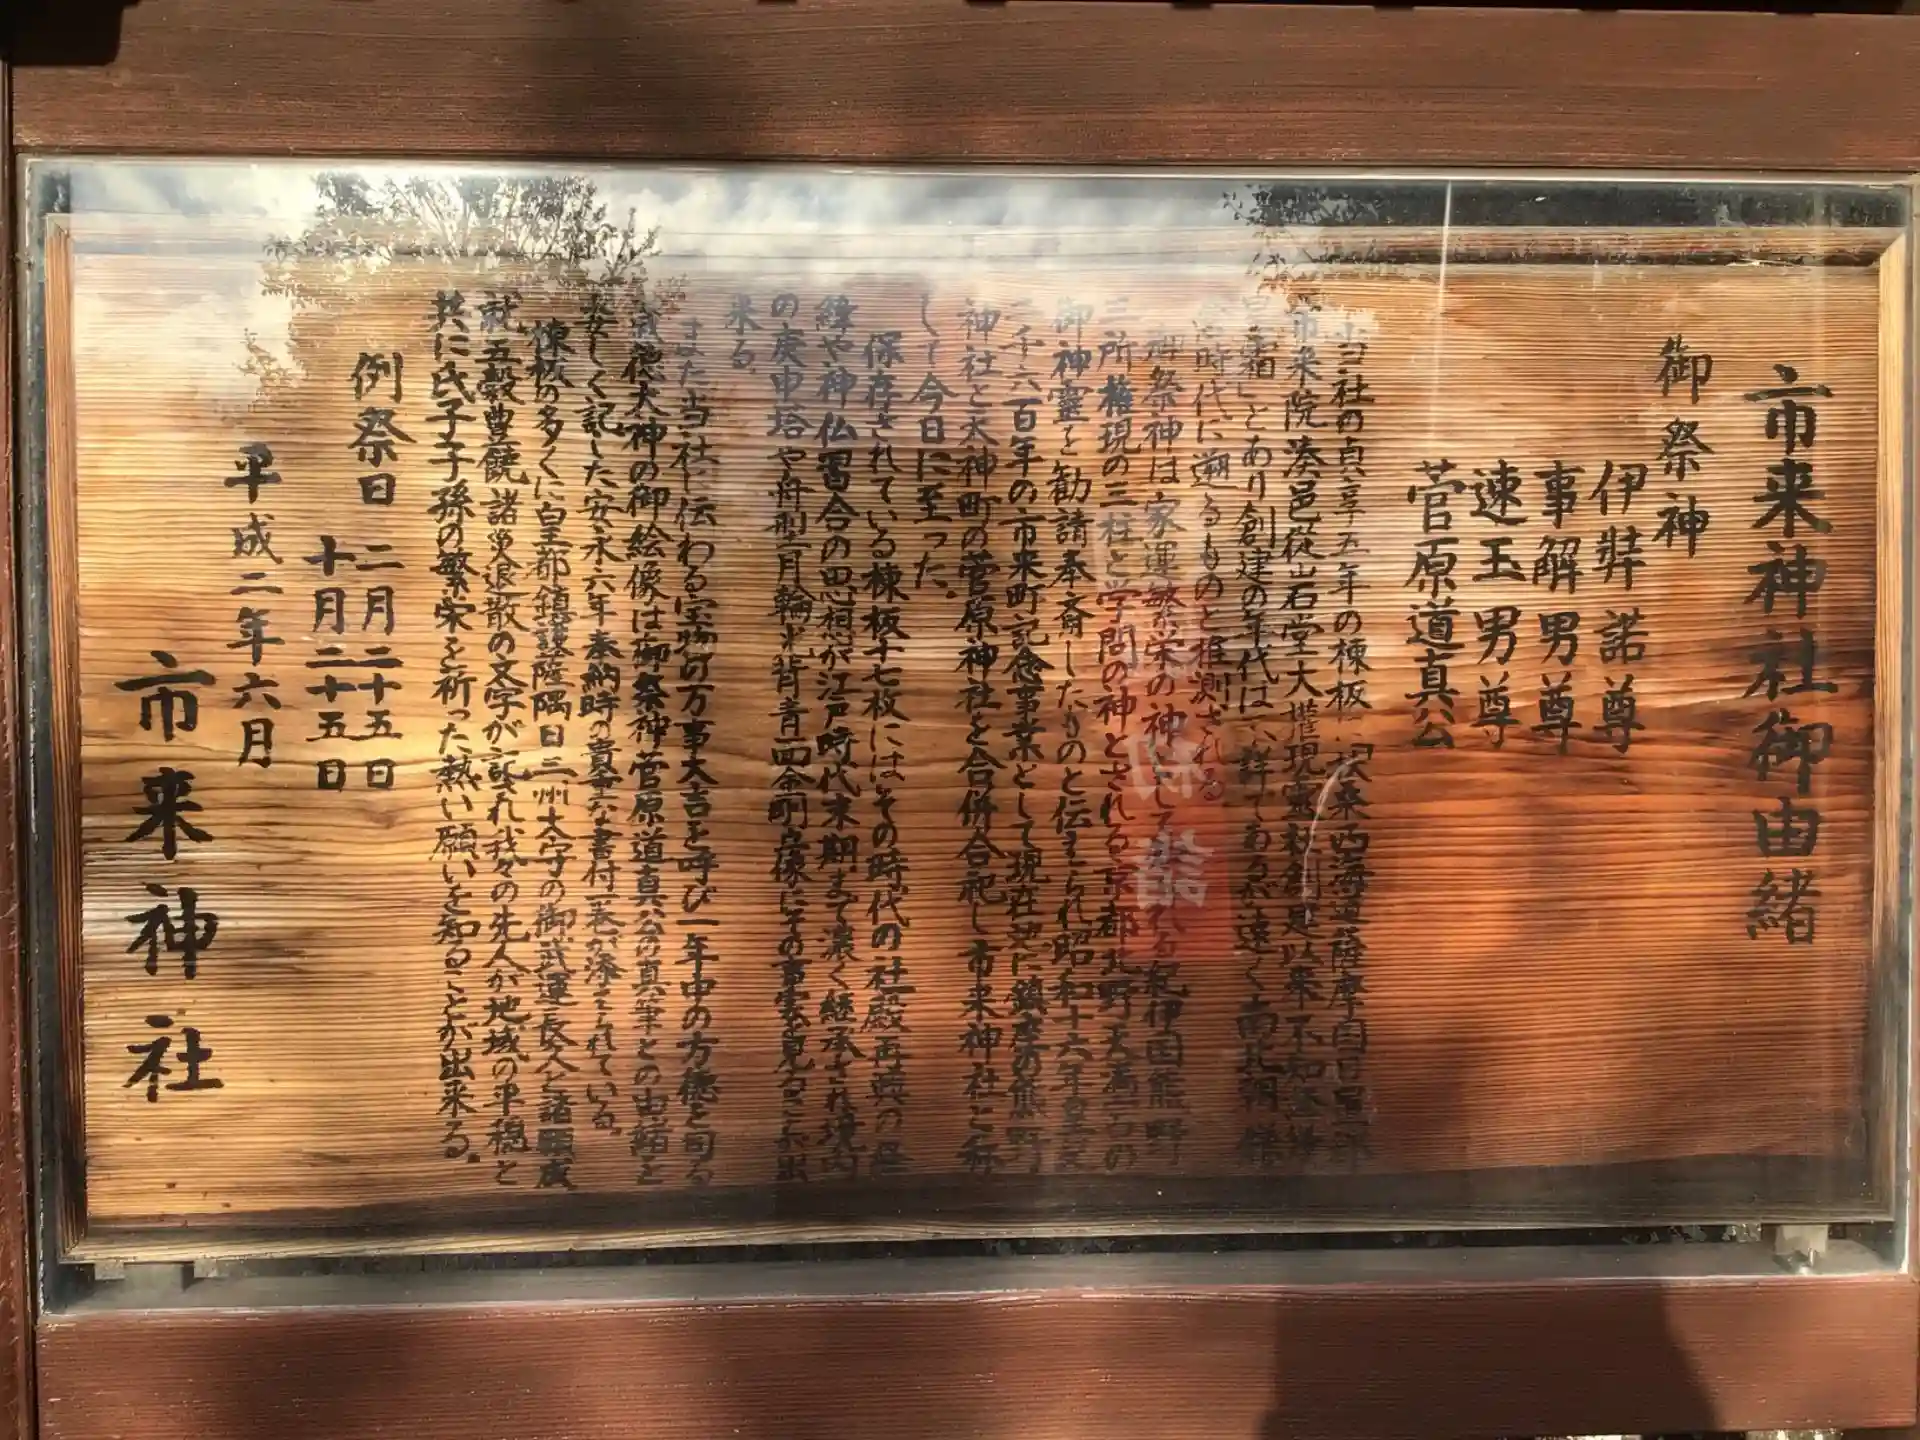 市来神社御由緒
御祭神
伊弉諾尊
事解男尊
速玉男尊
菅原道真公
当社の貞享五年の棟板に「扶桑西海道薩摩国日置郡
市来院湊邑従山石堂大権現霊社創建以来不知
星霜」とあり創建の年代は不詳であるが遠く南北朝鎌
倉時代に遡るものと推測される
御祭神は家運繁栄の神として る紀伊国熊野
三所権現の三柱と学問の神とされる京都北野天満宮の
御神霊を勧請奉斎したものと伝えられ昭和十六年皇紀
二千六百年の市来町記念事業として現在地に鎮座の熊野
神社と天神町の菅原神社を合併合祀し市来神社と称
して今日に至った。
保存されている棟板十七枚にはその時代の社殿再興の経
緯や神仏習合の思想が江戸時代末期まで濃く継承され境内
の庚申塔や舟型一月輪光背青面金剛像にその事実を見ることが出
来る。
また当社に伝わる宝物の万事大吉を呼び一年中の方徳を司る
歳徳大神の御絵像は御祭神菅原道真公の真筆との由緒を
美しく記した安永六年奉納時の貴重な書付一巻が添えられている。
棟板の多くに皇都鎮護薩隅日三州太守の御武運長久と諸願成
就五穀豊饒諸災退散の文字が記され我々の先人が地域の平穏と
共に氏子子孫の繁栄を祈った熱い願いを知ることが出来る。
例祭日 二月二十五日
十月二十五日
平成二年六月
市来神社
初詣